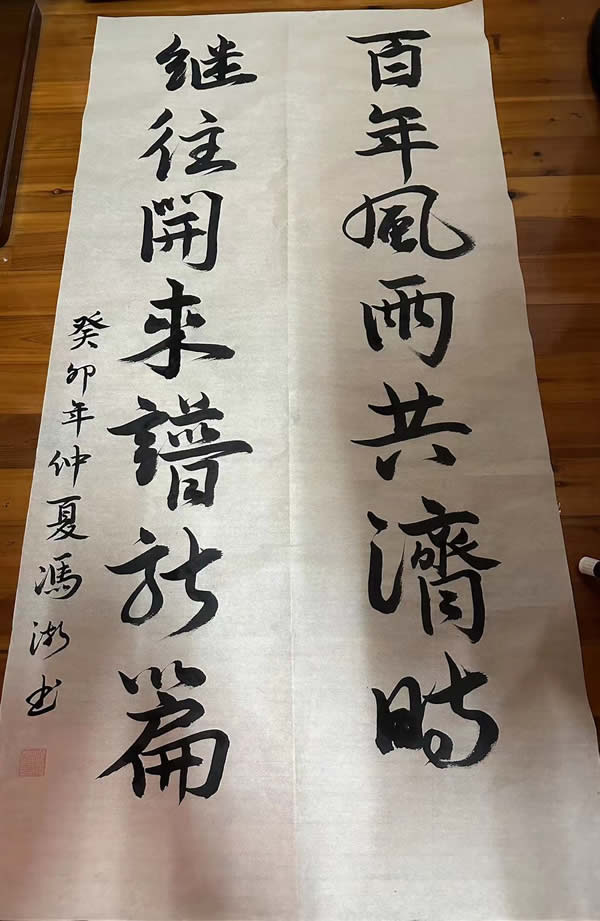 百年風雨共濟時
继往開來譜新篇
癸卯年仲夏馮浙书